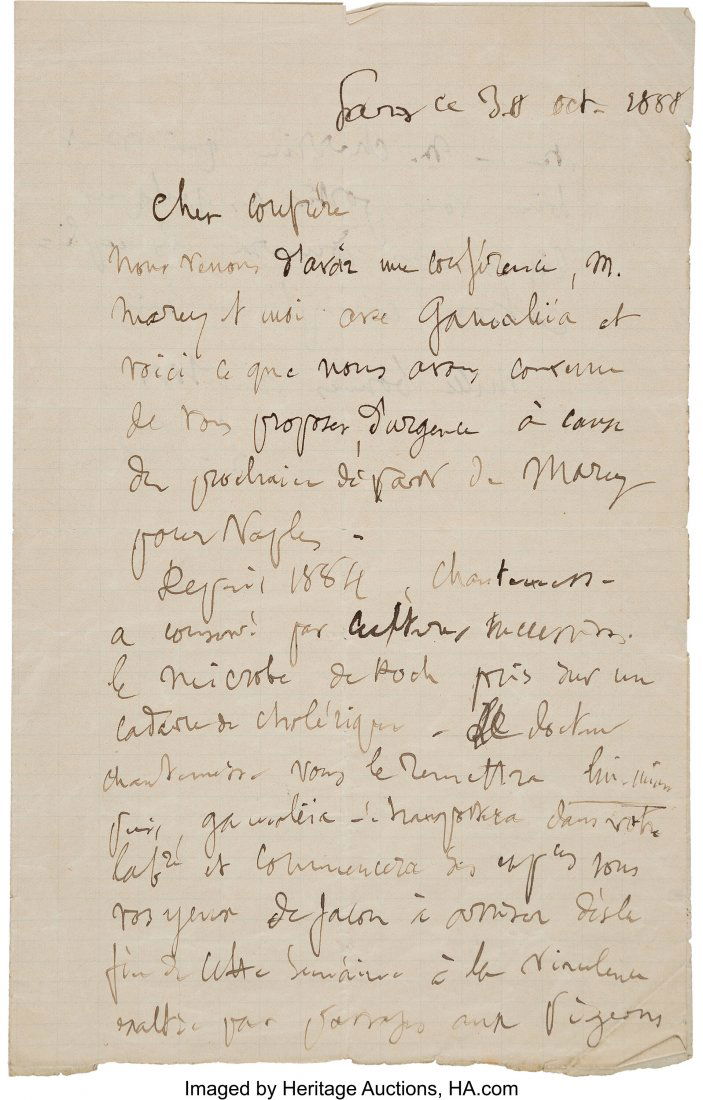 Paris ce 30 oct. 1888
Cher confrère
Nous venons d'avoir une conférence, M.
Marey et moi avec Gamaléia et
voici ce que nous avons convenu
de vous proposer, d'urgence à cause
du prochain départ de Marey
pour Naples -
Depuis 1884, Chantemesse
a conservé par cultures successives.
le microbe de Koch pris sur un
cadavre de cholérique - Le docteur
Chantemesse vous le remettra lui-même
puis, gamaleia se transportera dans votre
labre et commencera des expces sous
vos yeux de façon à arriver dès la
fin de cette semaine à la virulence
exaltée par passages aux pigeons
Imaged by Heritage Auctions, HA.com